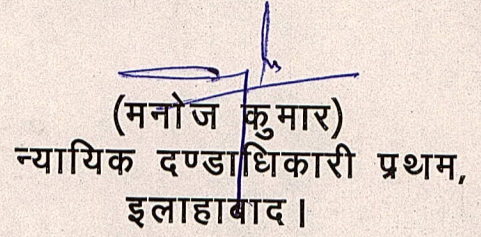 (मनोज कुमार)
न्यायिक दण्डाधिकारी प्रथम,
इलाहाबाद।